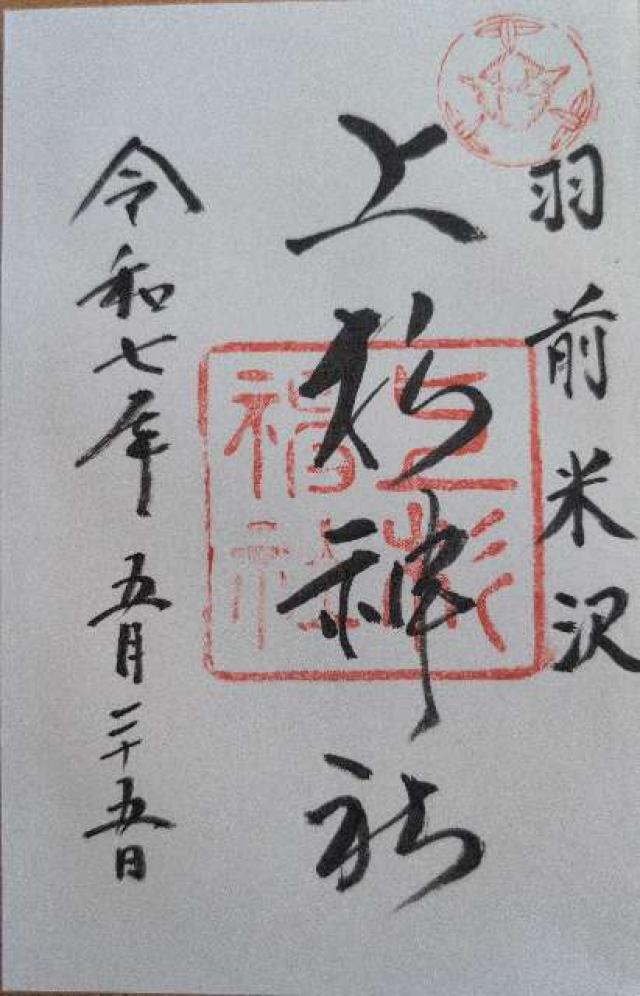 羽前米沢
上杉神社
上杉神社
令和七年五月二十五日